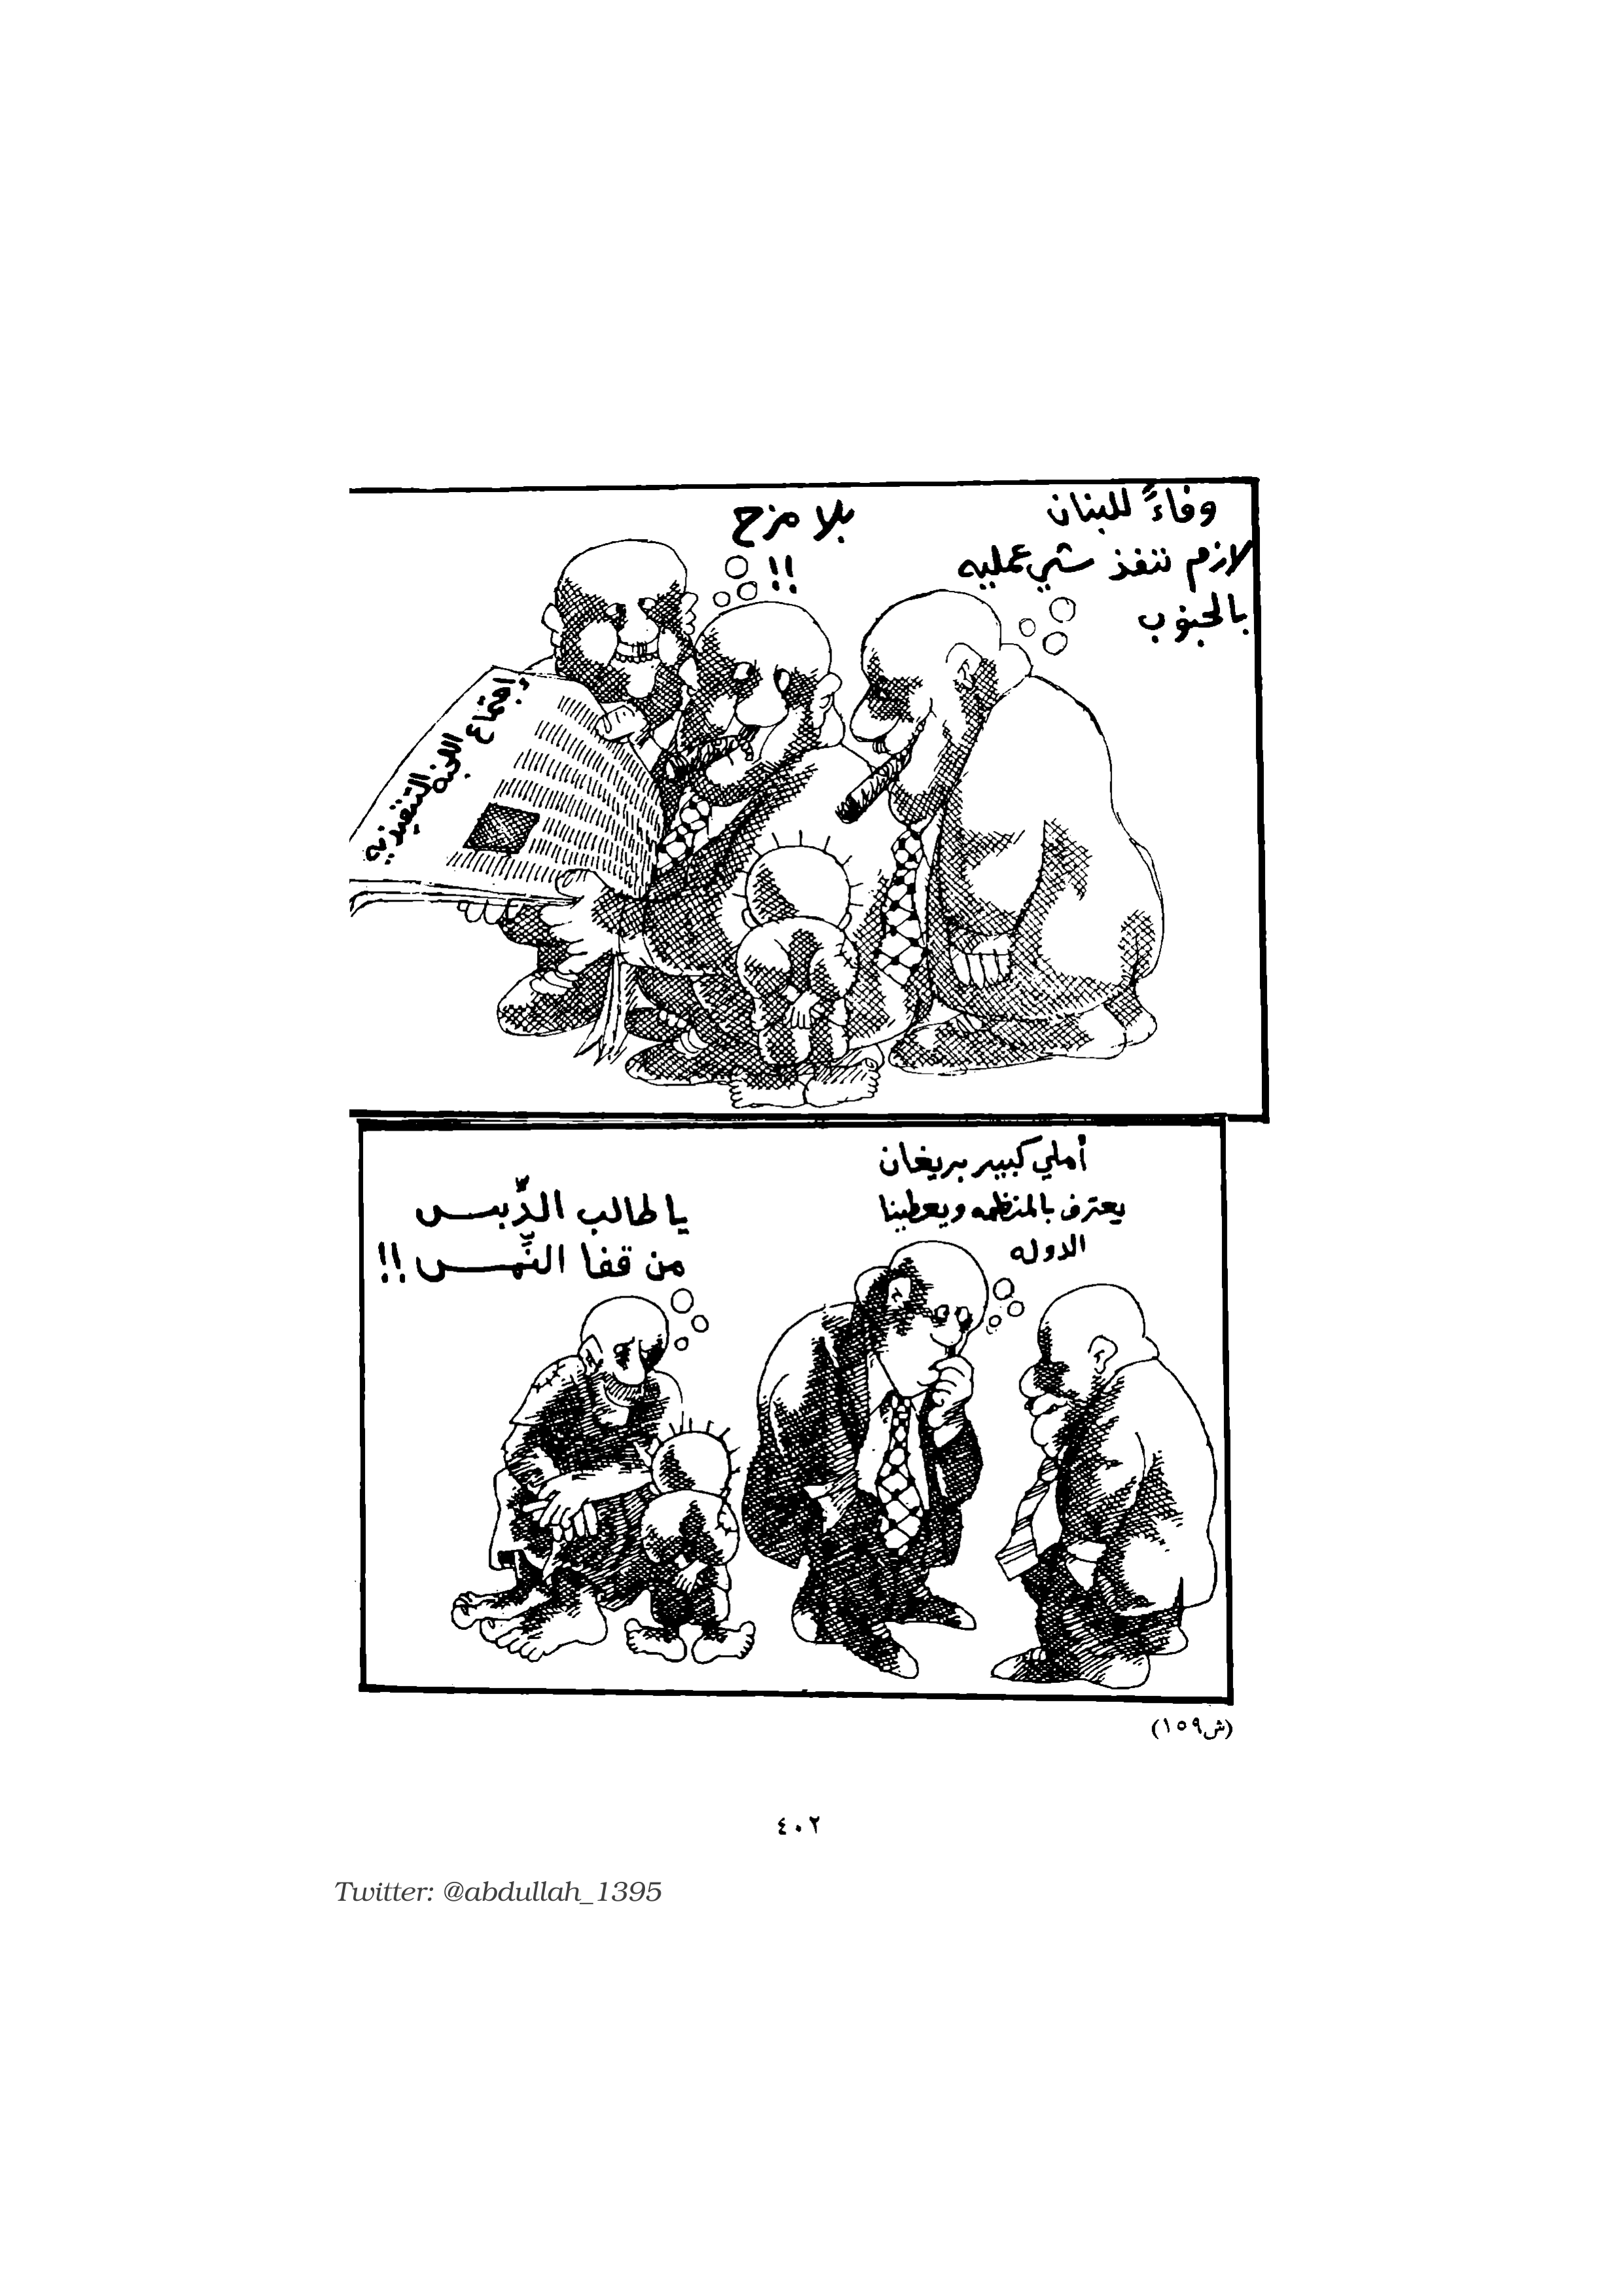 وفاءً للبنان
لازم ننفذ شي عمليه
بالجنوب
بلا مزح
!!
إجتماع
اللجنة
التنفيذيه
أملي كبير بريغان
يعترف بالمنظمه ويعطينا
الدوله
يا طالب الدِّبس
من قفا النِّمس!!
(ش١٥٩)
٤٠٢
Twitter: @abdullah_1395